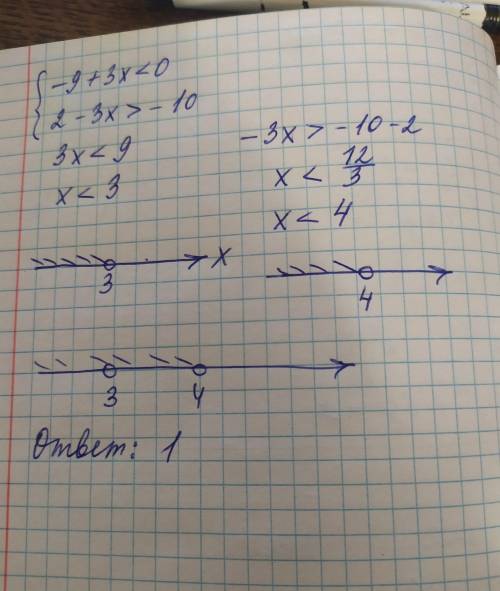 -9+3x<0
2-3x>-10
3x<9
x<3
-3x>-10-2
x< 12/3
x<4
3
x
4
3 4
Ответ: 1